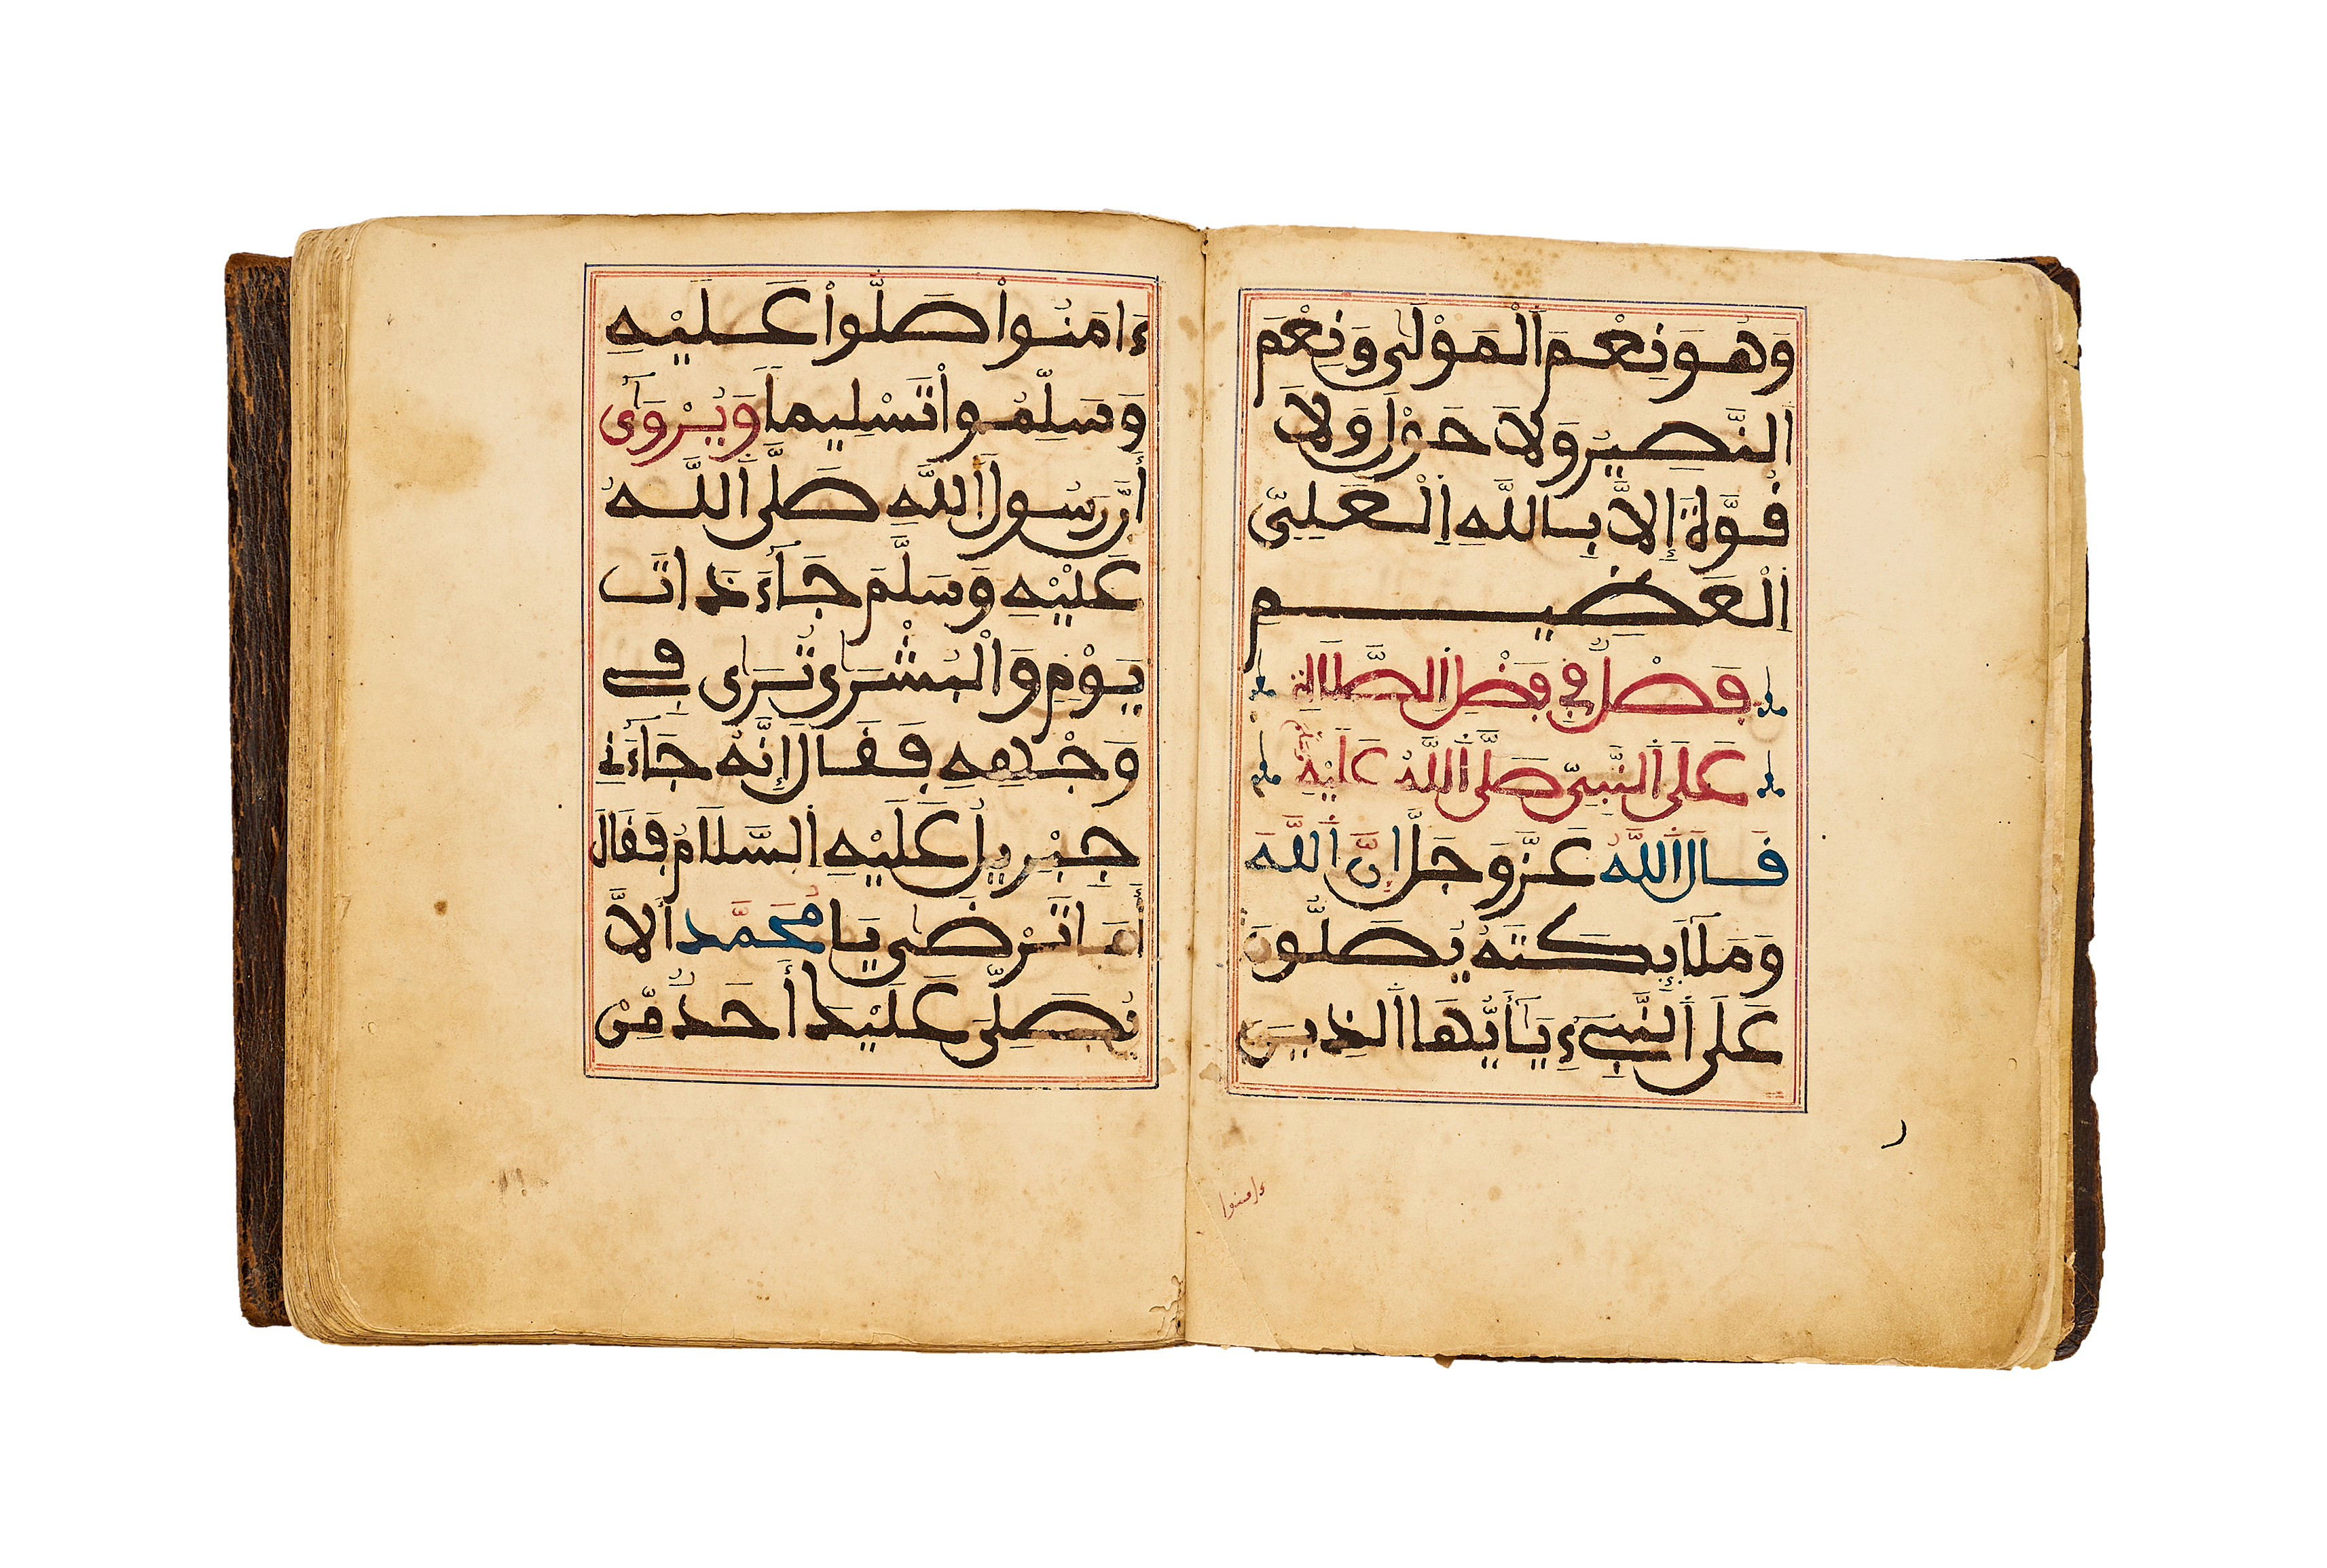 وَهُوَ نِعْمَ اَلْمَوْلَى وَنِعْمَ
اَلنَّصِيرُ وَلَا حَوْلَ وَلَا
قُوَّةَ إِلَّا بِاللَّهِ اِلْعَلِيِّ
اِلْعَظِيمِ
فَصْلٌ فِي فَضْلِ اِلصَّلَاةِ
عَلَى اَلنَّبِيِّ صَلَّى اَللَّهُ عَلَيْهِ وَسَلَّمَ
قَالَ اَللَّهُ عَزَّ وَجَلَّ إِنَّ اَللَّهَ
وَمَلَآئِكَتَهُ يُصَلُّونَ
عَلَى اَلنَّبِيءِ يَآأَيُّهَا اَلذِينَ
ءَامنوا
ءَامَنُواْ صَلُّواْ عَلَيْهِ
وَسَلِّمُواْ تَسْلِيماً وَيُرْوَى
أَنَّ رَسُولَ اَللَّهِ صَلَّى اَللَّهُ
عَلَيْهِ وَسَلَّمَ جَآءَ ذَاتَ
يَوْمٍ وَالْبُشْرَى تُرَى فِي
وَجْهِهِ فَقَالَ إِنَّهُ جَآءَنِي
جِبْرِيلُ عَلَيْهِ اِلسَّلَامُ فَقَالَ
أَمَا تَرْضَى يَا مُحَمَّدُ أَلَّا
يُصَلِّيَ عَلَيْكَ أَحَدٌ مِّنْ